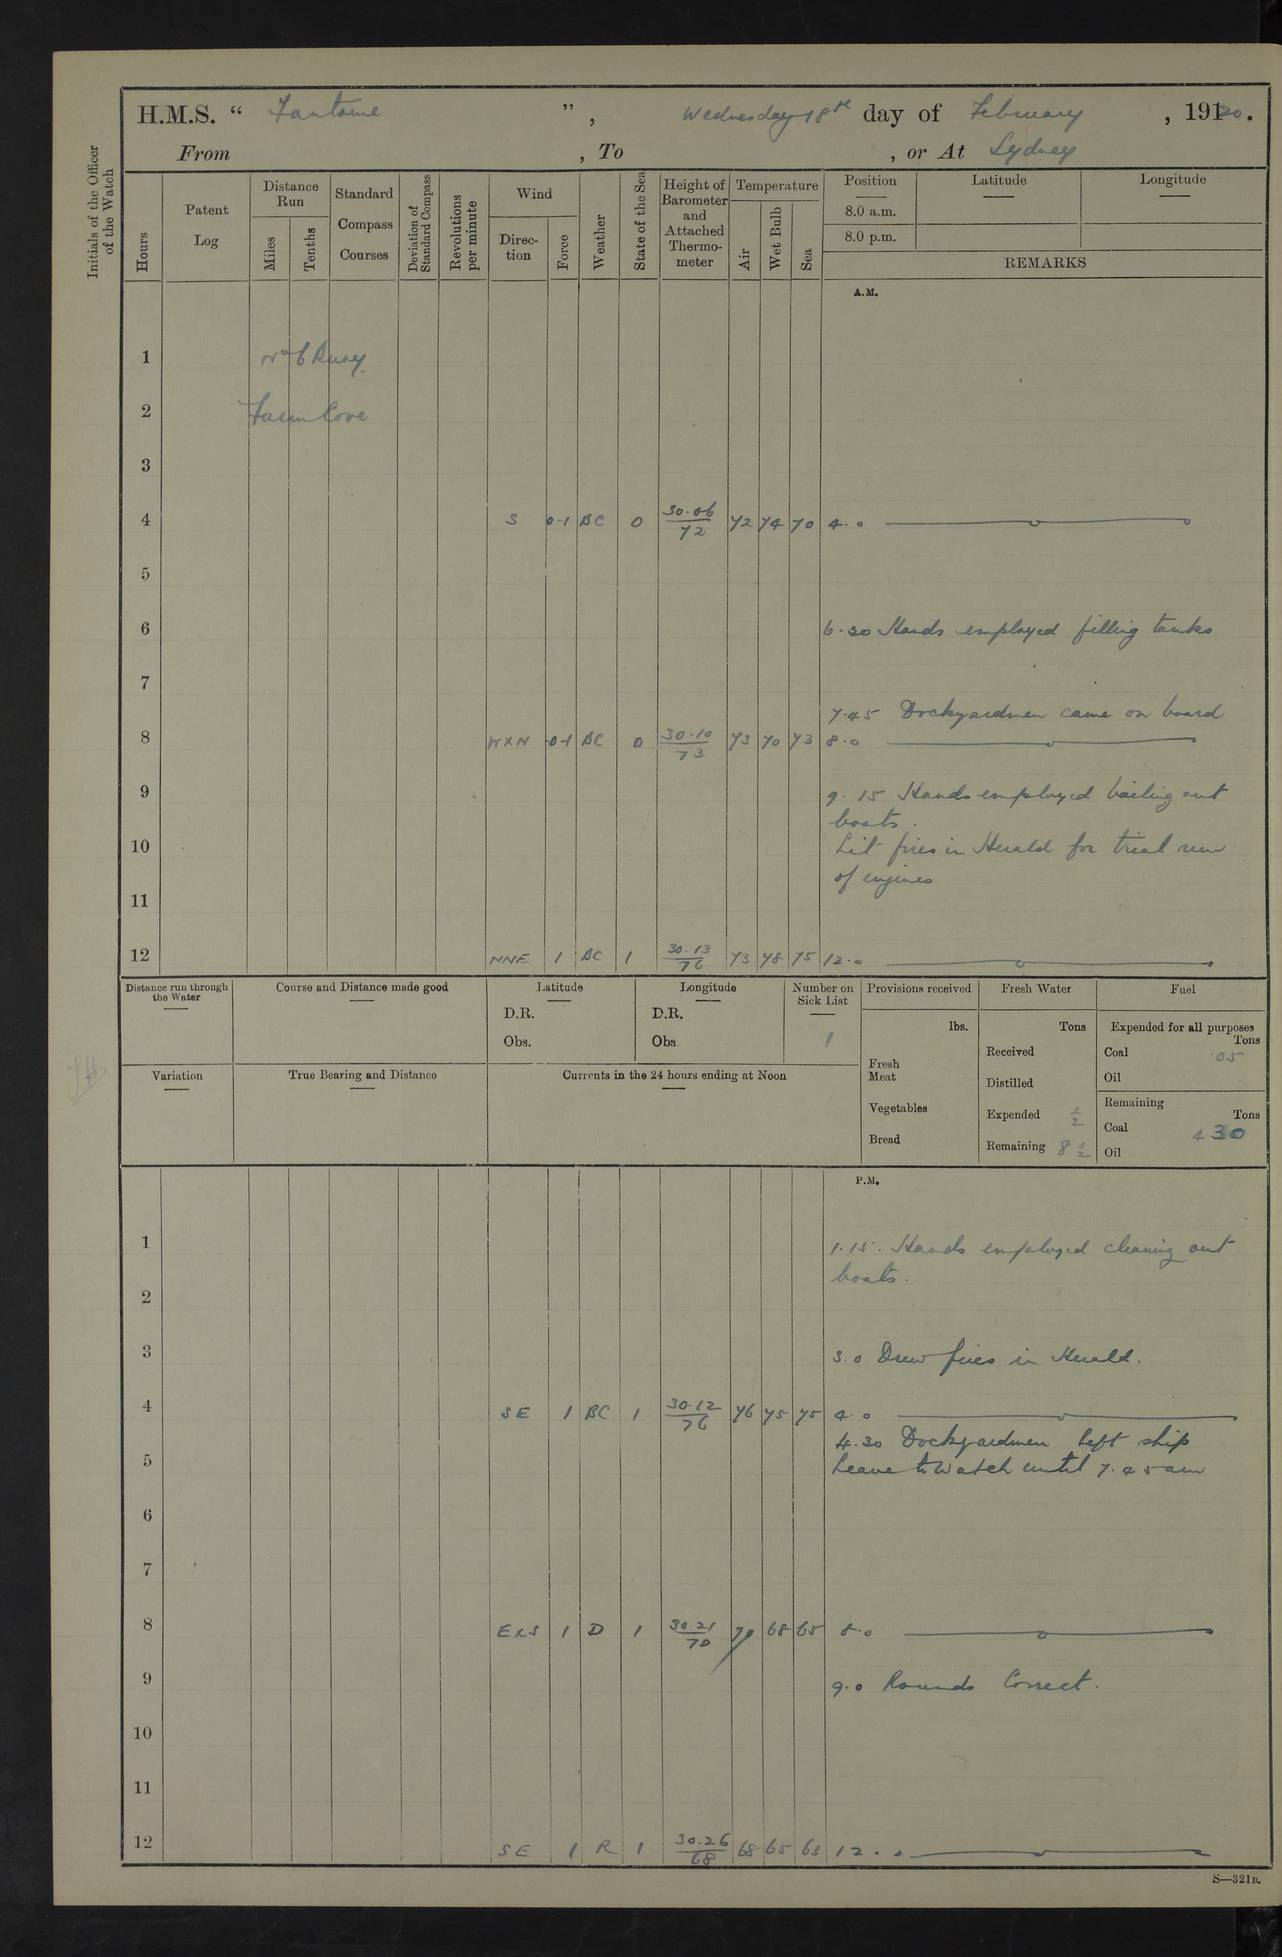 H.M.S. “ Fantome ”, Wednesday 18th day of February, 1920.
From , To , or At Sydney
Initials of the Officer of the Watch
Hours
Patent Log
Distance Run
Miles
Tenths
Standard Compass Courses
Deviation of Standard Compass
Revolutions per minute
Wind
Direction
Force
Weather
State of the Sea
Height of Barometer and Attached Thermometer
Temperature
Air
Wet Bulb
Sea
Position
8.0 a.m.
8.0 p.m.
Latitude
Longitude
REMARKS
A.M.
1 No 6 Buoy
2 Farm Cove
3
4 S 0-1 BC 0 30.06/72 72 74 70 4.0
5
6 6.30 Hands employed filling tanks
7
7.45 Dockyardmen came on board
8 WXN 0-1 BC 0 30.10/73 73 70 73 8.0
9 9.15 Hands employed bailing out
boats.
10 Lit fires in Herald for trial run
of engines
11
12 NNE 1 BC 1 30.13/76 73 78 75 12.0
Distance run through the Water
Course and Distance made good
Latitude
D.R.
Obs.
Longitude
D.R.
Obs.
Number on Sick List
1
Provisions received
lbs.
Fresh Meat
Vegetables
Bread
Fresh Water
Tons
Received
Distilled
Expended 1/2
Remaining 8 1/2
Fuel
Expended for all purposes
Tons
Coal .05
Oil
Remaining
Tons
Coal 430
Oil
Variation
True Bearing and Distance
Currents in the 24 hours ending at Noon
P.M.
1 1.15. Hands employed cleaning out
boats.
2
3 3.0 Drew fires in Herald.
4 SE 1 BC 1 30.12/76 76 75 75 4.0
4.30 Dockyardmen left ship
5 Leave to Watch until 7.45 am
6
7
8 EXS 1 D 1 30.21/70 70 68 65 8.0
9 9.0 Rounds Correct.
10
11
12 SE 1 R 1 30.26/68 68 65 63 12.0
S—321B.